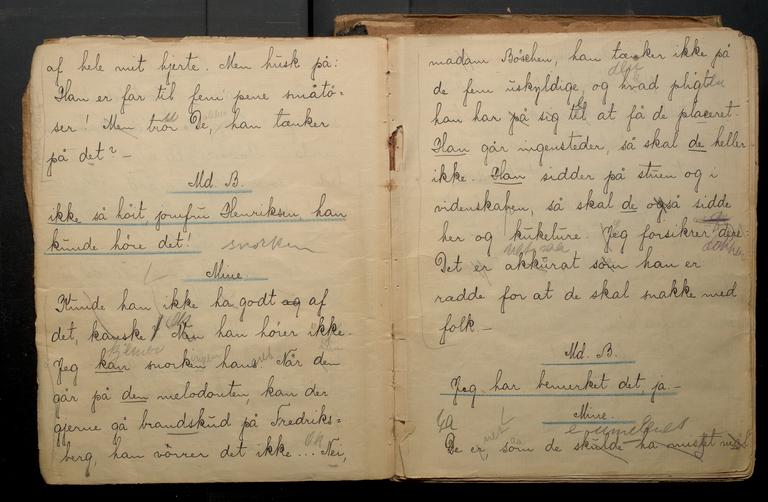 af hele mit hjerte. Men husk på:
Han er far til fem pene småtø-
ser! Men tror De, han tænker
på det? —
Md. B.
ikke så höit, jomfru Henriksen, han
kunde höre det! snorken
Mine.
Kunde han ikke ha godt og af
det, kanske! Men han hörer ikke.
Jeg kan snorken hans. Når den
går på den melodonten, kan der
gjerne gå brandskud på Fredriks=
berg, han vörrer det ikke ... Nei,
madam Böschen, han tænker ikke på
de fem uskyldige, og hvad pligt
han har på sig til at få de placeret.
Han går ingensteder, så skal de heller
ikke. Han sidder på stuen og i
videnskaben, så skal de også sidde
her og kukelure. Jeg forsikrer dere:
Det er akkurat som han er
radde for at de skal snakke med
folk. —
Md. B.
Jeg har bemerket det, ja. —
Mine.
De er, som de skulde ha mistet